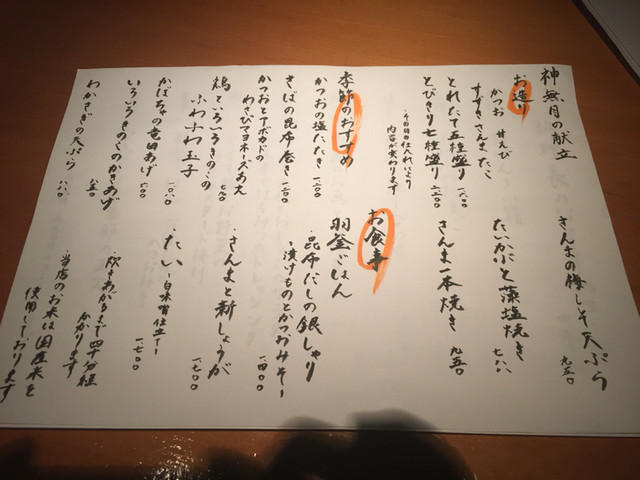 神無月の献立
お造り
かつお 甘えび
すずき さんま たこ
とれたて五種盛り 一、八〇〇
とびきり七種盛り 二、六〇〇
・その日の仕入れにより
内容が変わります
季節のおすすめ
かつおの塩たたき 一、二〇〇
さばの昆布巻き 一、二〇〇
かつおとアボカドの
わさびマヨネーズあえ 七〇〇
鴨といろいろきのこの
ふわふわ玉子 一、〇八〇
かぼちゃの竜田あげ 六〇〇
いろいろきのこのかきあげ 八五〇
わかさぎの天ぷら 六八〇
さんまの梅しそ天ぷら 九五〇
たいかぶと藻塩焼き 七八〇
さんま一本焼き 九五〇
お食事
羽釜ごはん
・昆布だしの銀しゃり
ー漬けものとかつおみそー 一、四〇〇
・さんまと新しょうが 一、八〇〇
・たい ー白味噌仕立てー 一、七〇〇
・炊きあがるまで四十分程
かかります
・当店のお米は国産米を
使用しております